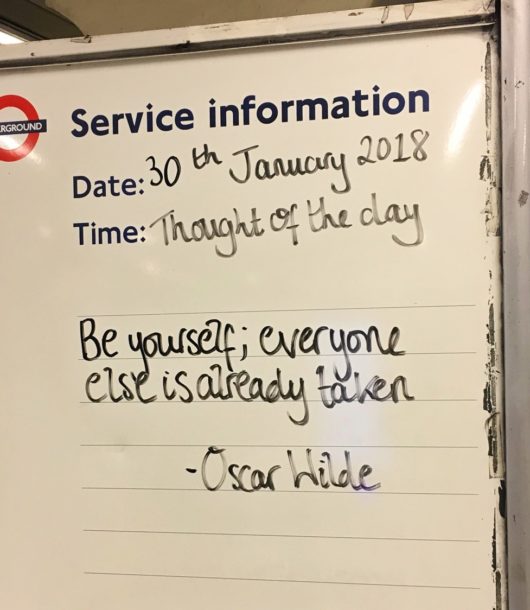 ERGROUND
Service information
Date: 30th January 2018
Time: Thought of the day
Be yourself; everyone
else is already taken
- Oscar Wilde